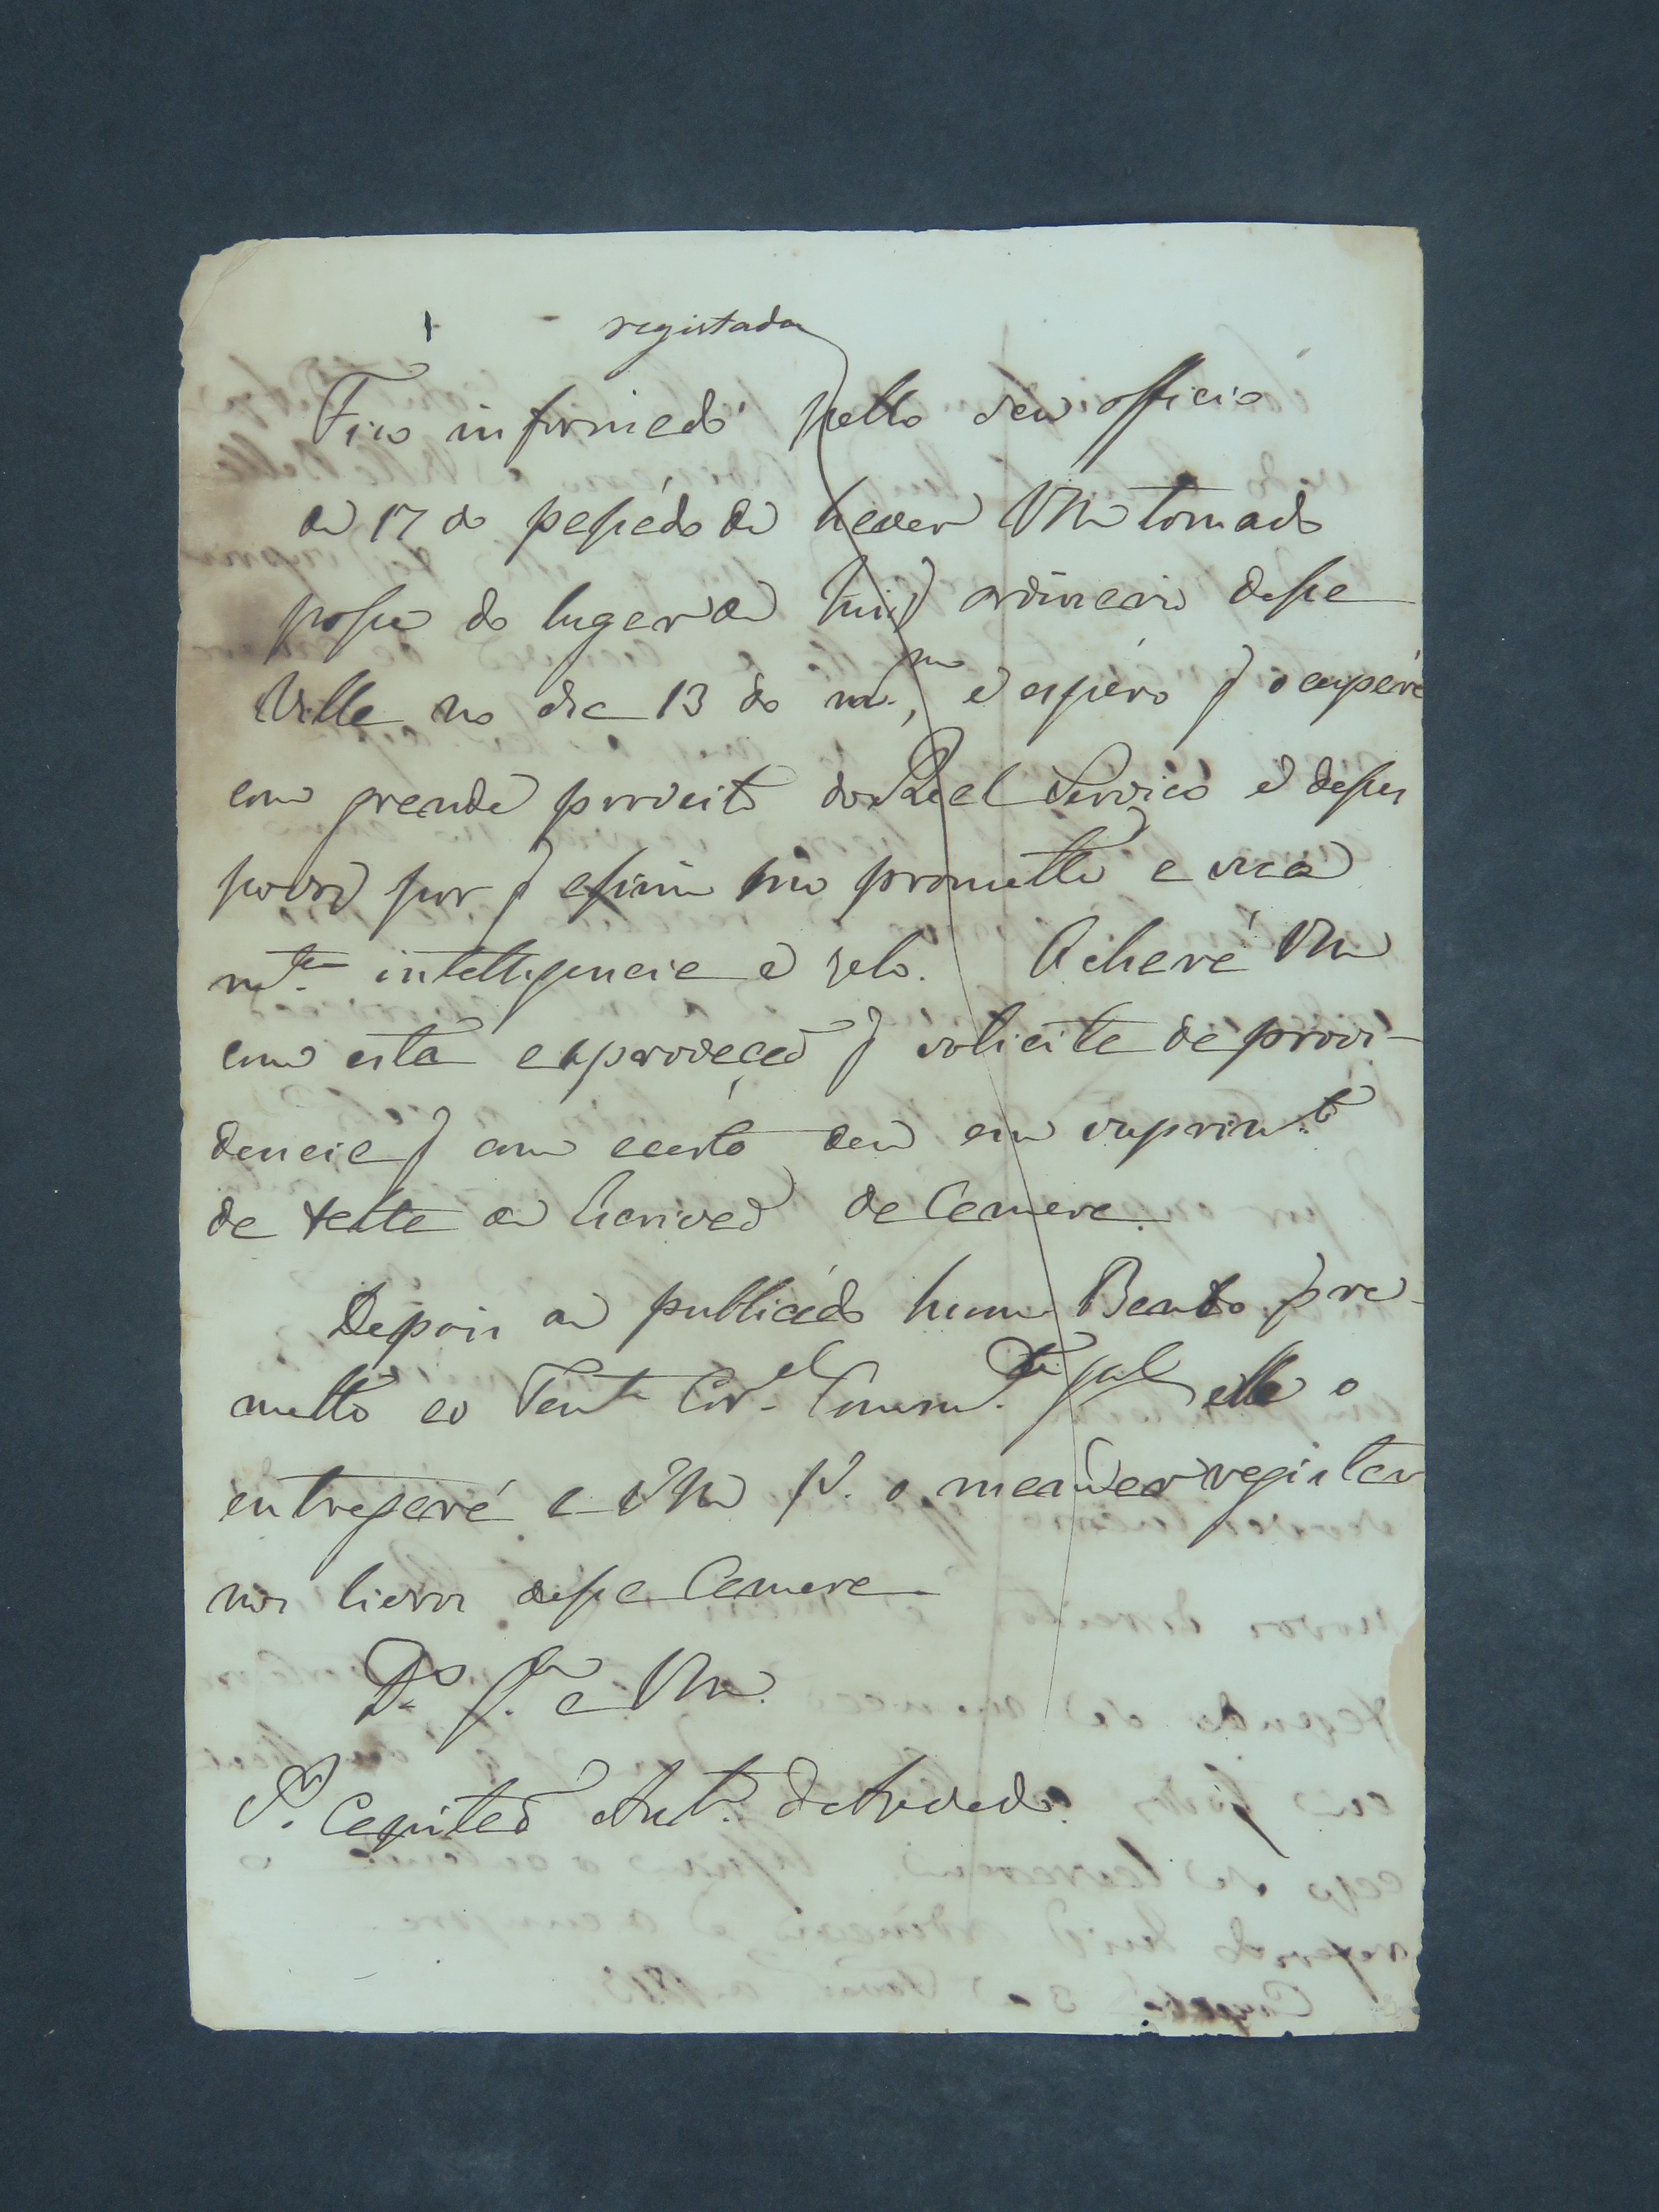 registada
Fico informado pello seu officio
de 17 do passado de haver Vm tomado
posse do lugar de Juiz ordinario dessa
Villa no dia 13 do m.mo, e espero q̃ ocupará
com grande proveito do Real Serviço e desses
povos por q̃ assim mo promette a sua
m.ta intelligencia e zelo. Achará Vm
com esta a aprovação q̃ solicita da provi-
dencia q̃ com acerto deu em suprim.to
da falta de Escrivão da Camara.
Depois de publicado hum Bando q̃ re-
metto ao Ten.te Cor.el Comm.de g.al elle o
entregará a Vm p.a o mandar registar
nos livros dessa Camara
D.s g.e a Vm.
S.r Capitão Ant.o